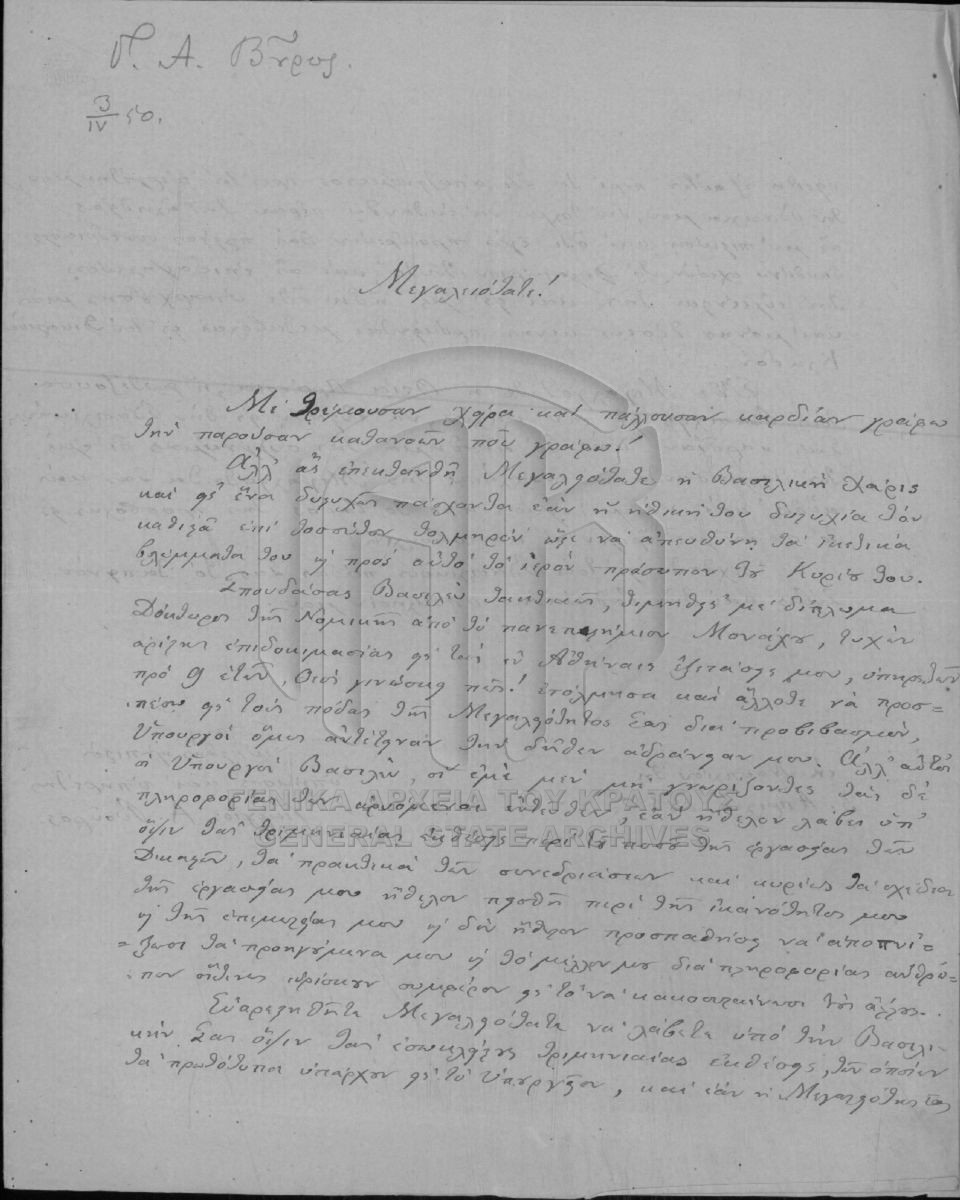 Γ. Α. Βῦρος.
3/IV 50.
Μεγαλειότατε!
Μὲ τρέμουσαν χεῖρα καὶ πάλλουσαν καρδίαν γράφω
τὴν παροῦσαν κατανοῶν ποῦ γράφω!
Ἀλλ' ἂς ἐπεκτανθῇ Μεγαλειότατε ἡ Βασιλικὴ Χάρις
καὶ εἰς ἕνα δυστυχῆ πάσχοντα ἐὰν ἡ ἠθική του δυστυχία τὸν
καθιστᾷ ἐπὶ τοσοῦτον τολμηρὸν ὥστε νὰ ἀπευθύνῃ τὰ ἱκετικὰ
βλέμματά του εἰς πρὸς αὐτὸ τὸ ἱερὸν πρόσωπον τοῦ Κυρίου του.
Σπουδάσας Βασιλεῦ τακτικῶς, τιμηθεὶς μὲ δίπλωμα
Δόκτωρος τῆς Νομικῆς ἀπὸ τὸ πανεπιστήμιον Μονάχου, τυχὼν
ἀρίστης ἐπιδοκιμασίας εἰς τὰς ἐν Ἀθήναις ἐξετάσεις μου, ὑπηρετῶν
πρὸ 9 ἐτῶν, Θεὸς γινώσκει πῶς! ἐτόλμησα καὶ ἄλλοτε νὰ προσ=
πέσω εἰς τοὺς πόδας τῆς Μεγαλειότητός Σας διὰ προβιβασμόν,
Ὑπουργοὶ ὅμως ἀντέτειναν τὴν δῆθεν ἀδράνειάν μου. Ἀλλ' αὐτοὶ
οἱ Ὑπουργοὶ Βασιλεῦ, οἱ ἐμὲ μὲν μὴ γνωρίζοντες τὰς δὲ
πληροφορίας των ἀρυόμενοι ἐντεῦθεν, ἐὰν ἤθελον λάβει ὑπ'
ὄψιν τὰς τριμηνιαίας ἐκθέσεις περὶ τοῦ ποσοῦ τῆς ἐργασίας τῶν
Δικαστῶν, τὰ πρακτικὰ τῶν συνεδριάσεων καὶ κυρίως τὰ σχέδια
τῆς ἐργασίας μου ἤθελον πεισθῆ περὶ τῆς ἱκανότητός μου
ἢ τῆς ἐπιμελείας μου ἢ δὲν ἤθελον προσπαθήσει νὰ ἀποπνί=
=ξωσι τὰ προηγούμενά μου ἢ τὸ μέλλον μου διὰ πληροφορίας ἀνθρώ=
πων οἵτινες εὑρίσκουν συμφέρον εἰς τὸ νὰ κακοσυσταίνωσι τοὺς ἄλλους.
Εὐαρεστηθῆτε Μεγαλειότατε νὰ λάβετε ὑπὸ τὴν Βασιλι=
κήν Σας ὄψιν τὰς ἐσωκλείστους τριμηνιαίας ἐκθέσεις, τῶν ὁποίων
τὰ πρωτότυπα ὑπάρχουν εἰς τὸ Ὑπουργεῖον, καὶ ἐὰν ἡ Μεγαλειότης Σας
ΓΕΝΙΚΑ ΑΡΧΕΙΑ ΤΟΥ ΚΡΑΤΟΥΣ
GENERAL STATE ARCHIVES